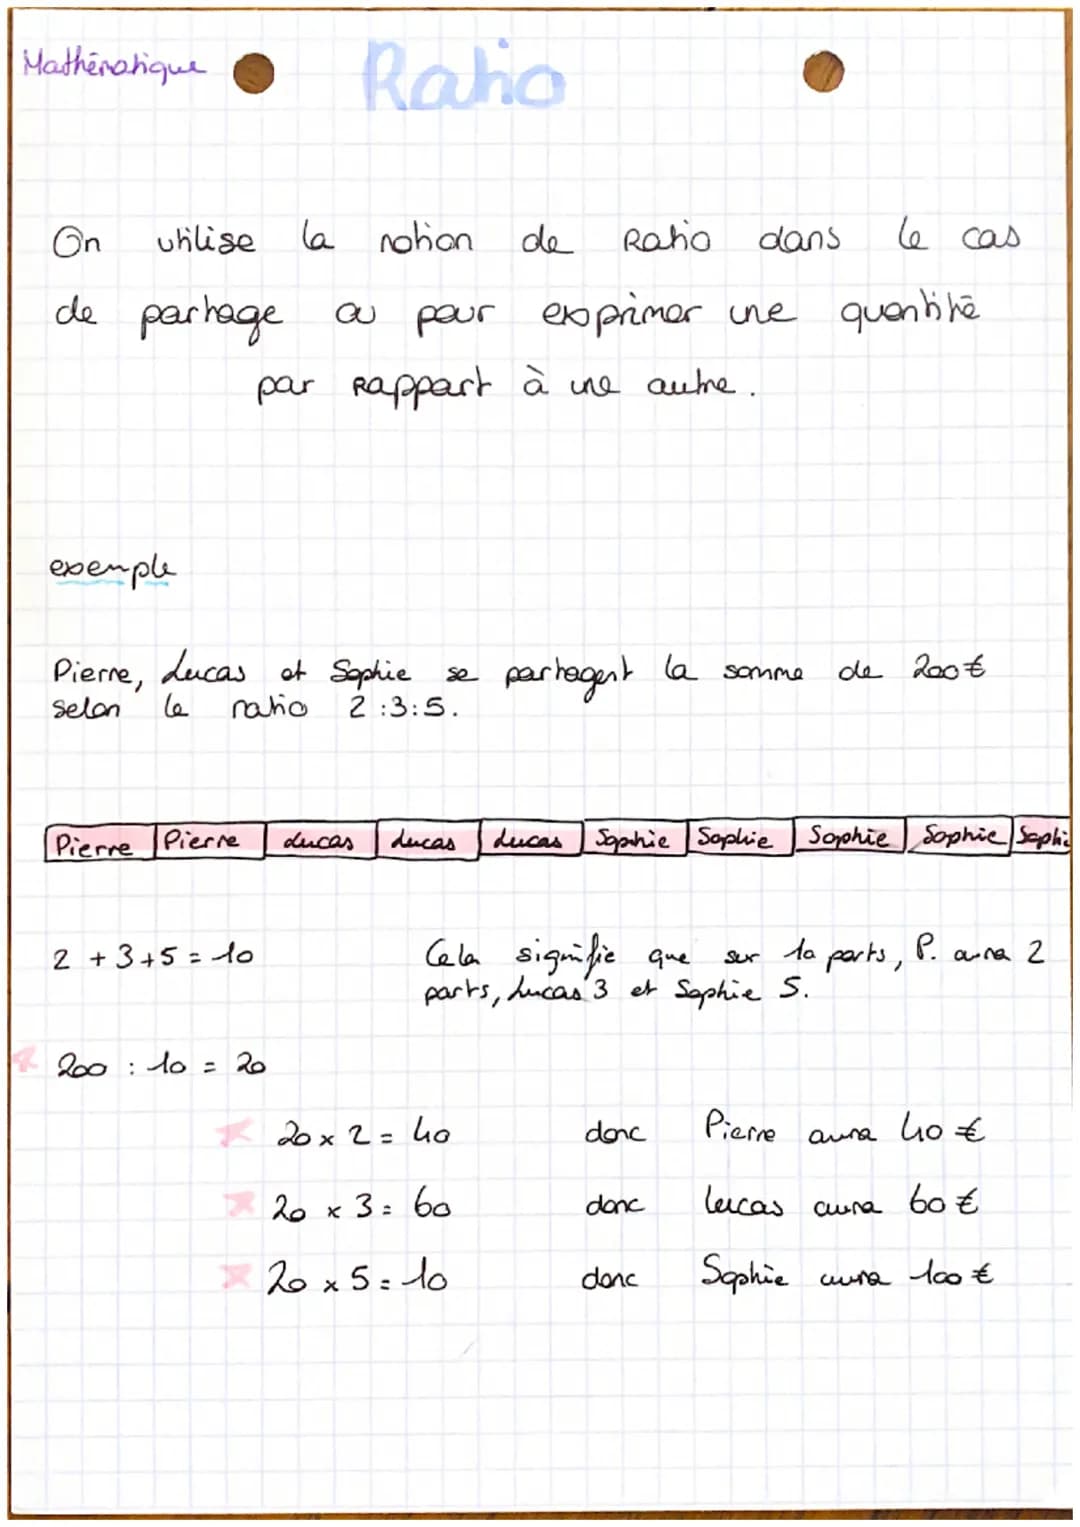 Mathématique
Ratio
On utilise la notion de Ratio dans le cas
de partage ou pour exprimer une quantité
par Rapport à une autre.
exemple
Pierre, Lucas et Sophie se partagent la somme de 200€
selon le ratio 2:3:5.
Pierre Pierre Lucas Lucas Lucas Sophie Sophie Sophie Sophie Sophie
2 + 3 + 5 = 10
Cela signifie que sur 10 parts, P. aura 2
parts, Lucas 3 et Sophie 5.
200 : 10 = 20
20 x 2 = 40 donc Pierre aura 40 €
20 x 3 = 60 donc Lucas aura 60 €
20 x 5 = 10 donc Sophie aura 100 €